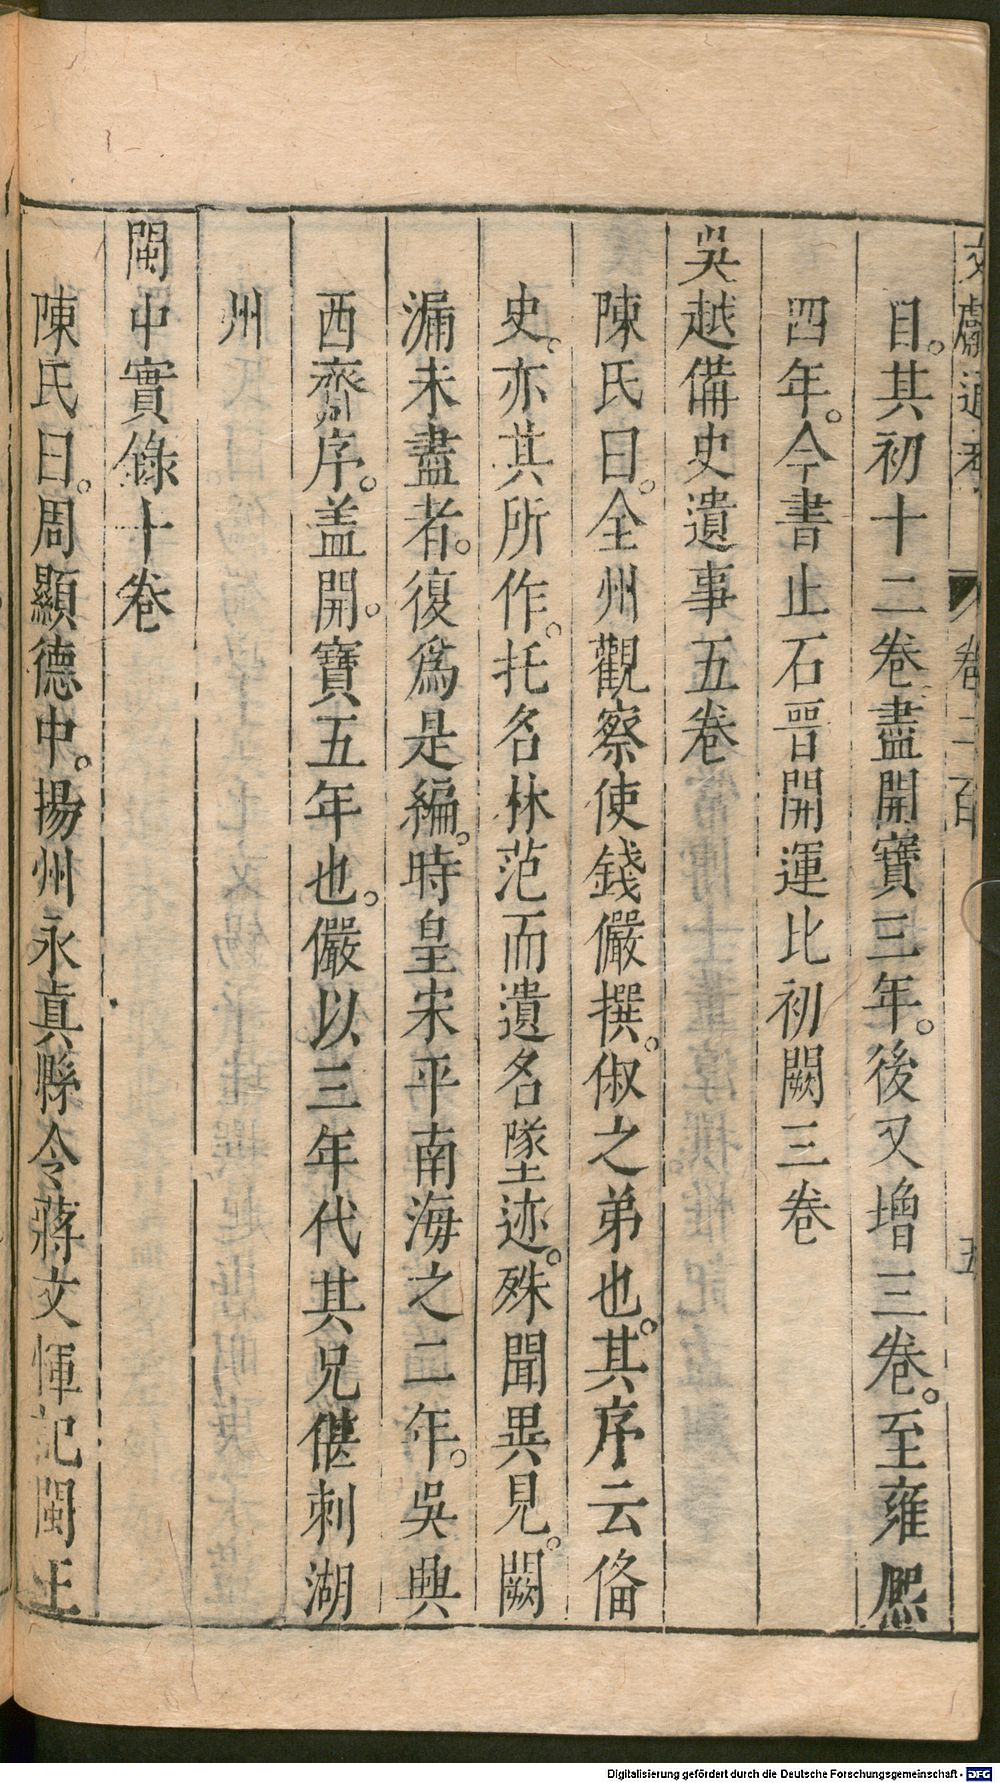 文獻通考 卷二百 五
目。其初十二卷盡開寶三年。後又增三卷。至雍熙
四年。今書止石晉開運比初闕三卷
吳越備史遺事五卷
陳氏曰。全州觀察使錢儼撰。俶之弟也。其序云俻
史。亦其所作。托名林范而遺名墜迹。殊聞異見。闕
漏未盡者。復爲是編。時皇宋平南海之二年。吳興
西齋序。盖開。寶五年也。儼以三年代其兄偡刺湖
州
閩中實錄十卷
陳氏曰。周顯德中。揚州永真縣令蔣文惲記閩王
Digitalisierung gefördert durch die Deutsche Forschungsgemeinschaft - DFG